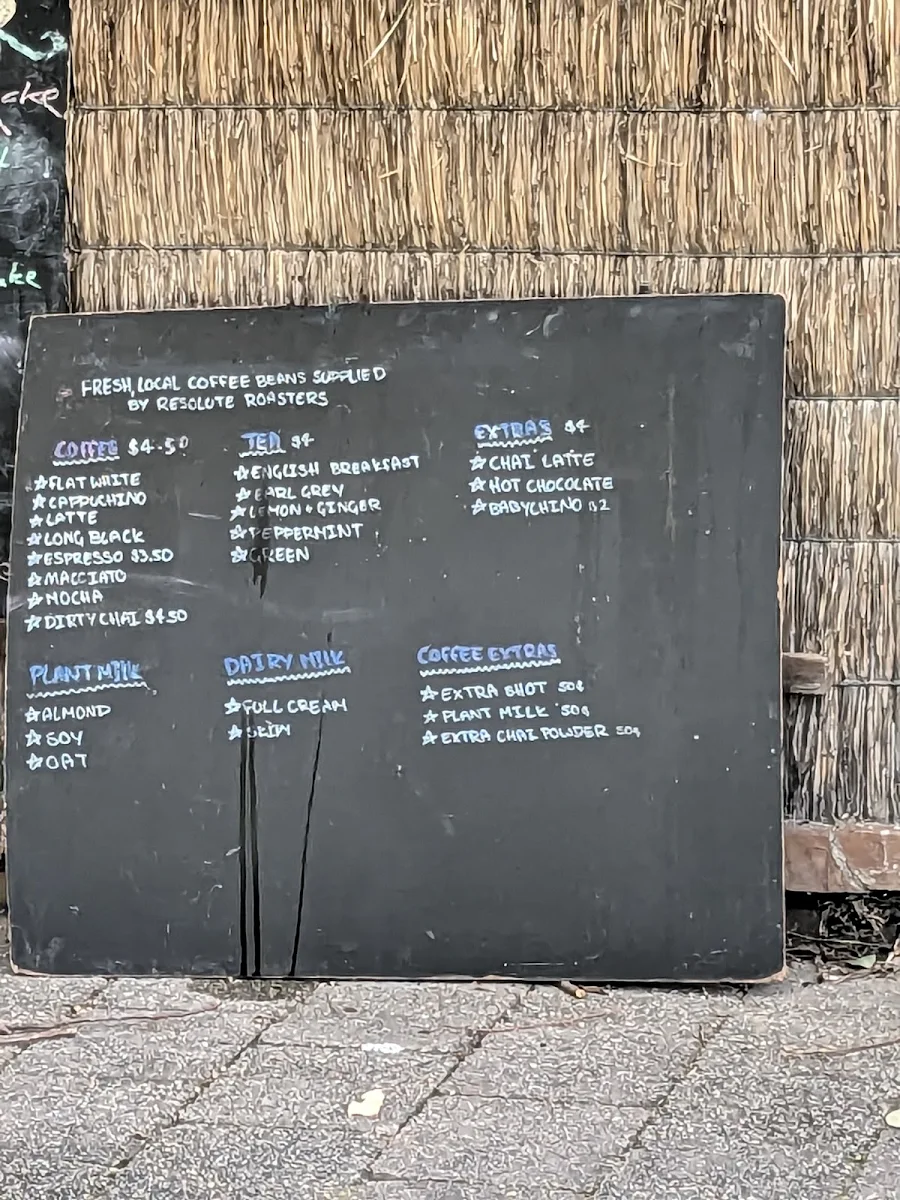 cke
ke
FRESH, LOCAL COFFEE BEANS SUPPLIED
BY RESOLUTE ROASTERS
COFFEE $4.50
☆FLAT WHITE
☆CAPPUCHINO
☆LATTE
☆LONG BLACK
☆ESPRESSO $3.50
☆MACCIATO
☆MOCHA
☆DIRTY CHAI $4.50
TEA $4
☆ENGLISH BREAKFAST
☆EARL GREY
☆LEMON & GINGER
☆PEPPERMINT
☆GREEN
EXTRAS $4
☆CHAI LATTE
☆HOT CHOCOLATE
☆BABYCHINO $2
PLANT MILK
☆ALMOND
☆SOY
☆OAT
DAIRY MILK
☆FULL CREAM
☆SKIM
COFFEE EXTRAS
☆EXTRA SHOT 50¢
☆PLANT MILK 50¢
☆EXTRA CHAI POWDER 50¢